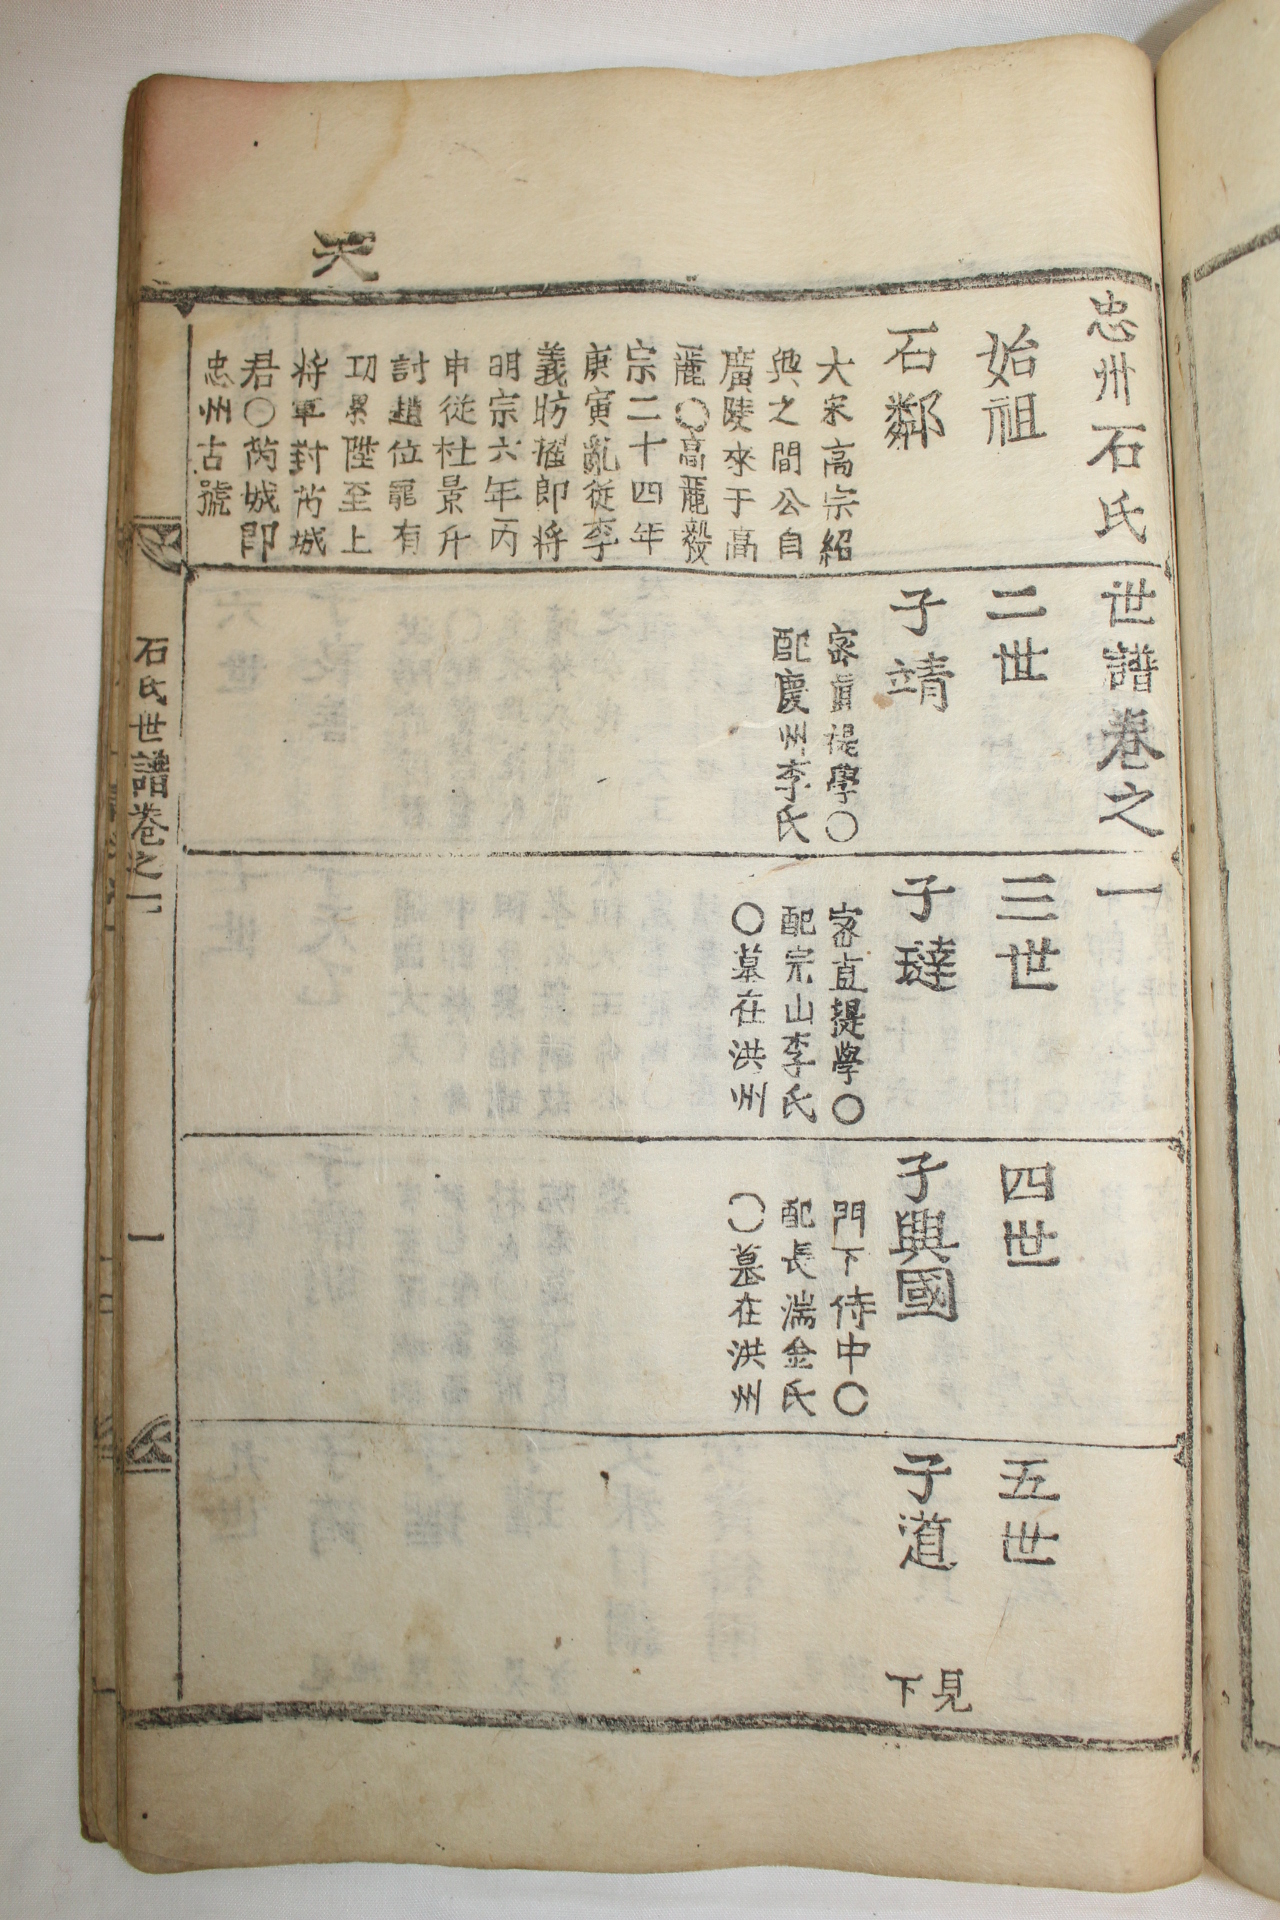 天
忠州石氏世譜卷之一
始祖
石鄰
大宋高宗紹
興之間公自
廣陵來于高
麗〇高麗毅
宗二十四年
庚寅亂從李
義昉擢郎將
明宗六年丙
申從杜景升
討趙位寵有
功累陞至上
將軍封芮城
君〇芮城即
忠州古號
二世
子靖
密直提學〇
配慶州李氏
三世
子㺚
密直提學〇
配完山李氏
〇墓在洪州
四世
子興國
門下侍中〇
配長湍金氏
〇墓在洪州
五世
子道
見下
石氏世譜卷之一
一